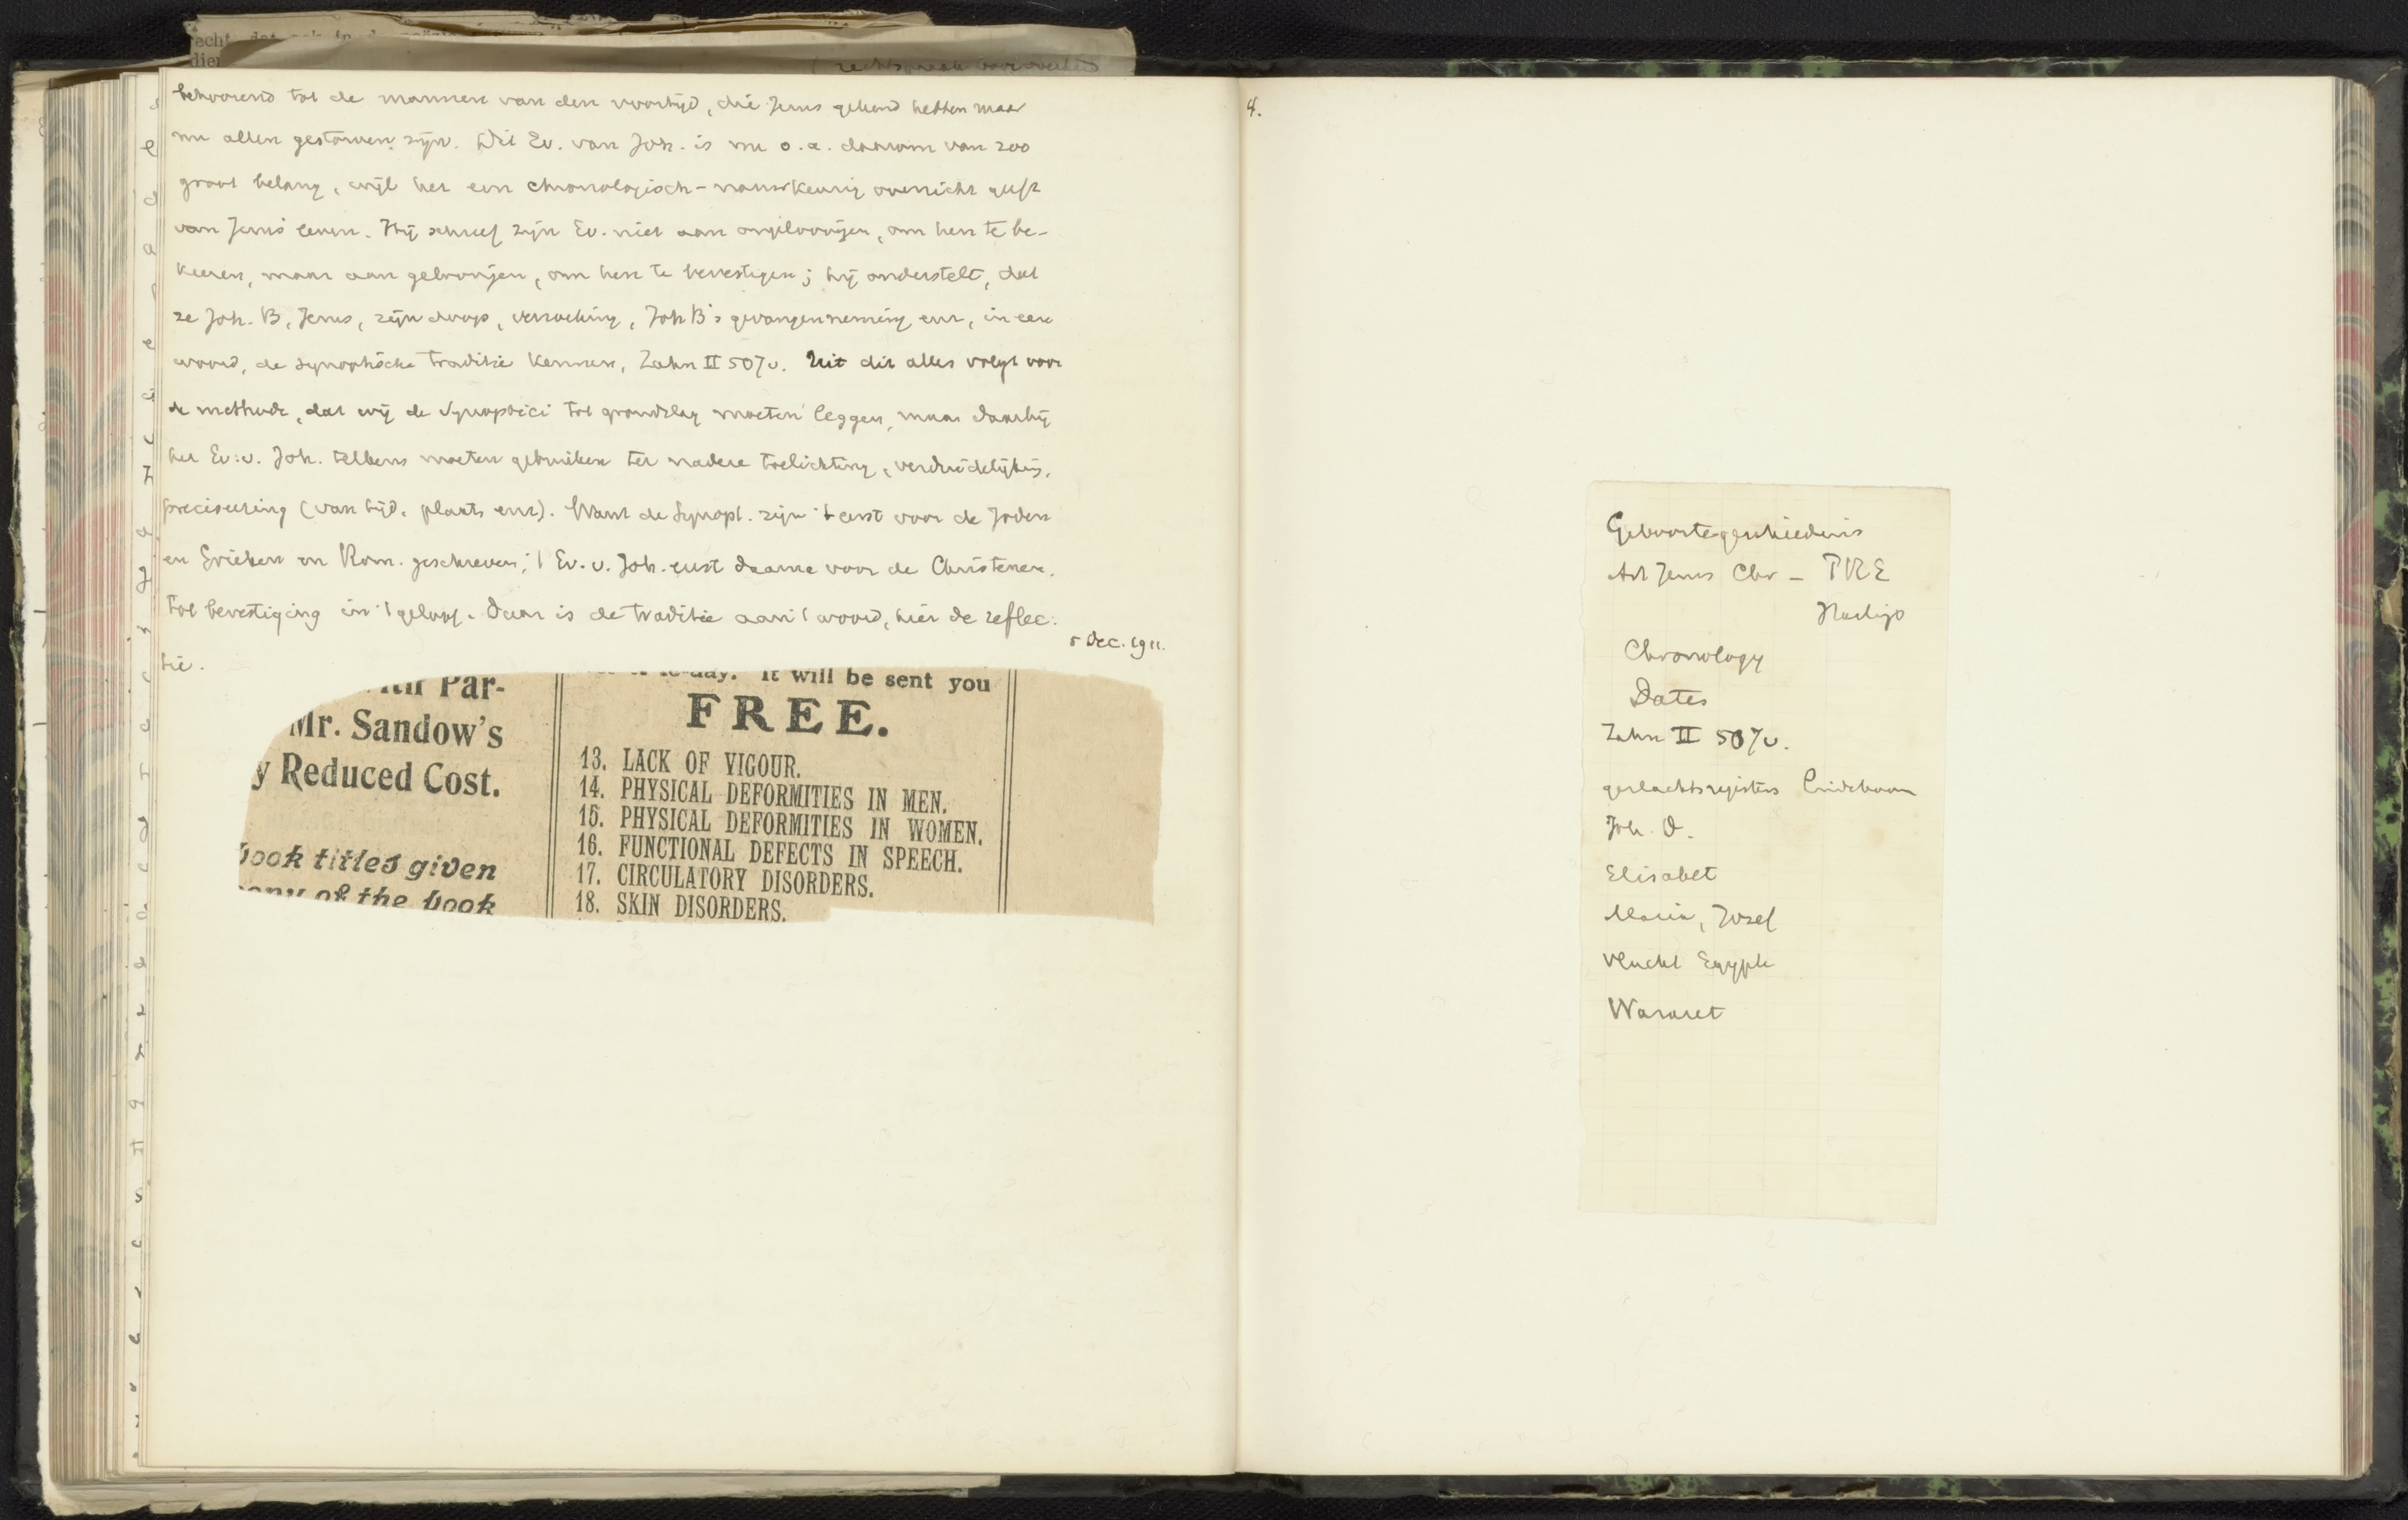 behoorend tot de mannen van den voortijd, die Jezus gekend hebben maar
nu allen gestorven zijn. Dit Ev. van Joh. is nu o.a. daarom van zoo
groot belang, wijl het een chronologisch-nauwkeurig overzicht geeft
van Jezus' leven. Hij schreef zijn Ev. niet aan ongeloovigen, om hen te be-
keeren, maar aan geloovigen, om hen te bevestigen; hij onderstelt, dat
ze Joh. B, Jezus, zijn doop, verzoeking, Joh B's gevangenneming enz, in een
woord, de synoptische traditie kennen, Zahn II 507v. Uit dit alles volgt voor
de methode, dat wij de Synoptici tot grondslag moeten leggen, maar daarbij
het Ev. v. Joh. telkens moeten gebruiken ter nadere toelichting, verduidelijking,
preciseering (van tijd, plaats enz). Want de Synopt. zijn 't eerst voor de Joden
en Grieken en Rom. geschreven; 't Ev. v. Joh. eerst daarna voor de Christenen,
tot bevestiging in 't geloof. Daar is de traditie aan 't woord, hier de reflec-
tie.
5 Dec. 1911.
Par-
Mr. Sandow's
y Reduced Cost.
book titles given
of the book
to-day. It will be sent you
FREE.
13. LACK OF VIGOUR.
14. PHYSICAL DEFORMITIES IN MEN.
15. PHYSICAL DEFORMITIES IN WOMEN.
16. FUNCTIONAL DEFECTS IN SPEECH.
17. CIRCULATORY DISORDERS.
18. SKIN DISORDERS.
4.
Geboortegeschiedenis
Art Jezus Chr - PRE
Chronology
Dates
Zahn II 507v.
geslachtsregisters Lindeboom
Joh. D.
Elisabet
Maria, Jozef
Vlucht Egypte
Nazaret